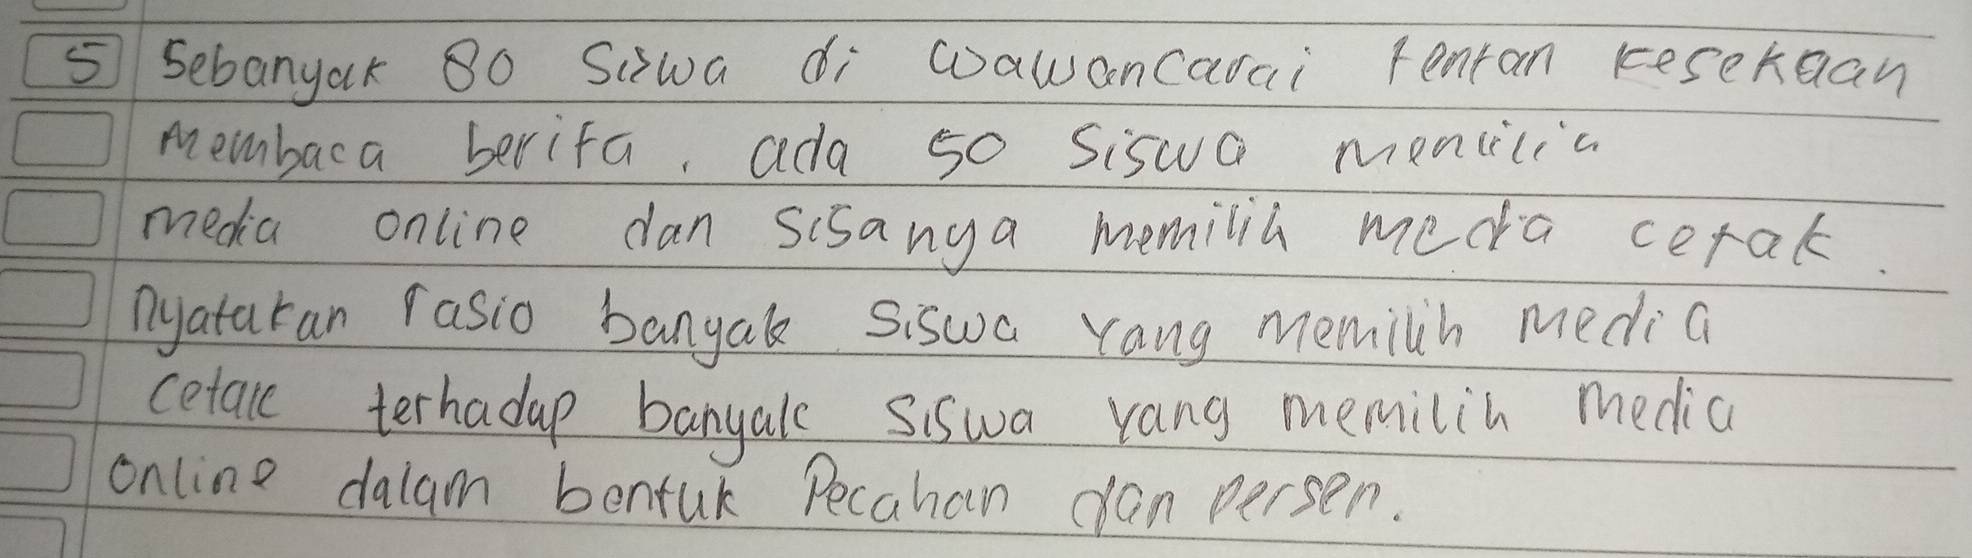 5 Sebanyak 80 Siswa di wawancarai tentan kesekaan
membaca berita. ada 50 siswa memilih
media online dan sisanya memilih media cetak.
nyatakan rasio banyak siswa yang memilih media
cetak terhadap banyak siswa yang memilih media
online dalam bentuk Pecahan dan persen.